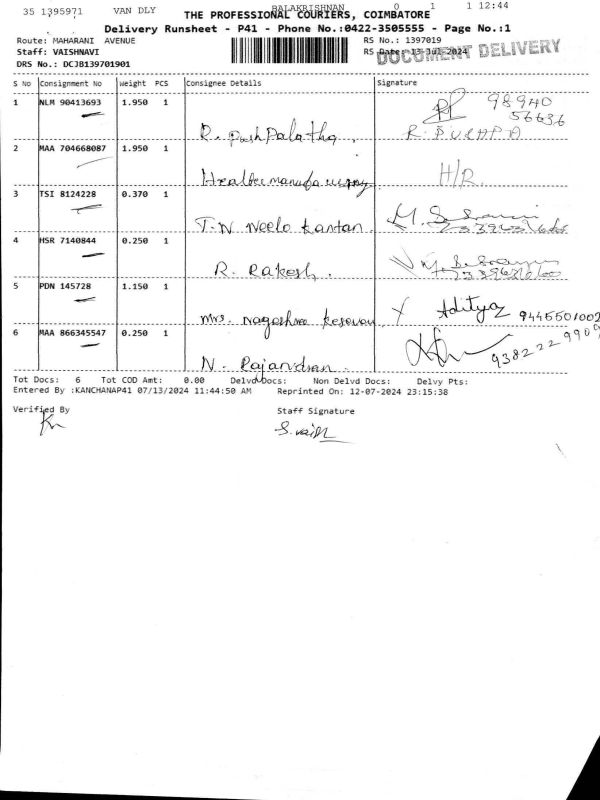 35 1395971 VAN DLY BALAKRISHNAN 0 1 1 12:44
THE PROFESSIONAL COURIERS, COIMBATORE
Delivery Runsheet - P41 - Phone No.:0422-3505555 - Page No.:1
Route: MAHARANI AVENUE RS No.: 1397019
Staff: VAISHNAVI RS Date: 13-Jul-2024
DOCUMENT DELIVERY
DRS No.: DCJB139701901
S No Consignment No Weight PCS Consignee Details Signature
1 NLM 90413693 1.950 1
R. PushPalatha. 98940 56636
2 MAA 704668087 1.950 1
H/R.
3 TSI 8124228 0.370 1
T.N Neela Kantan
4 HSR 7140844 0.250 1
R. Rakesh.
5 PDN 145728 1.150 1
Mrs. Nagashree Kesavan X Aditya 9445501002
6 MAA 866345547 0.250 1
N. Rajandran. 9382229909
Tot Docs: 6 Tot COD Amt: 0.00 Delvd Docs: Non Delvd Docs: Delvy Pts:
Entered By :KANCHANAP41 07/13/2024 11:44:50 AM Reprinted On: 12-07-2024 23:15:38
Verified By Staff Signature
S. vaish